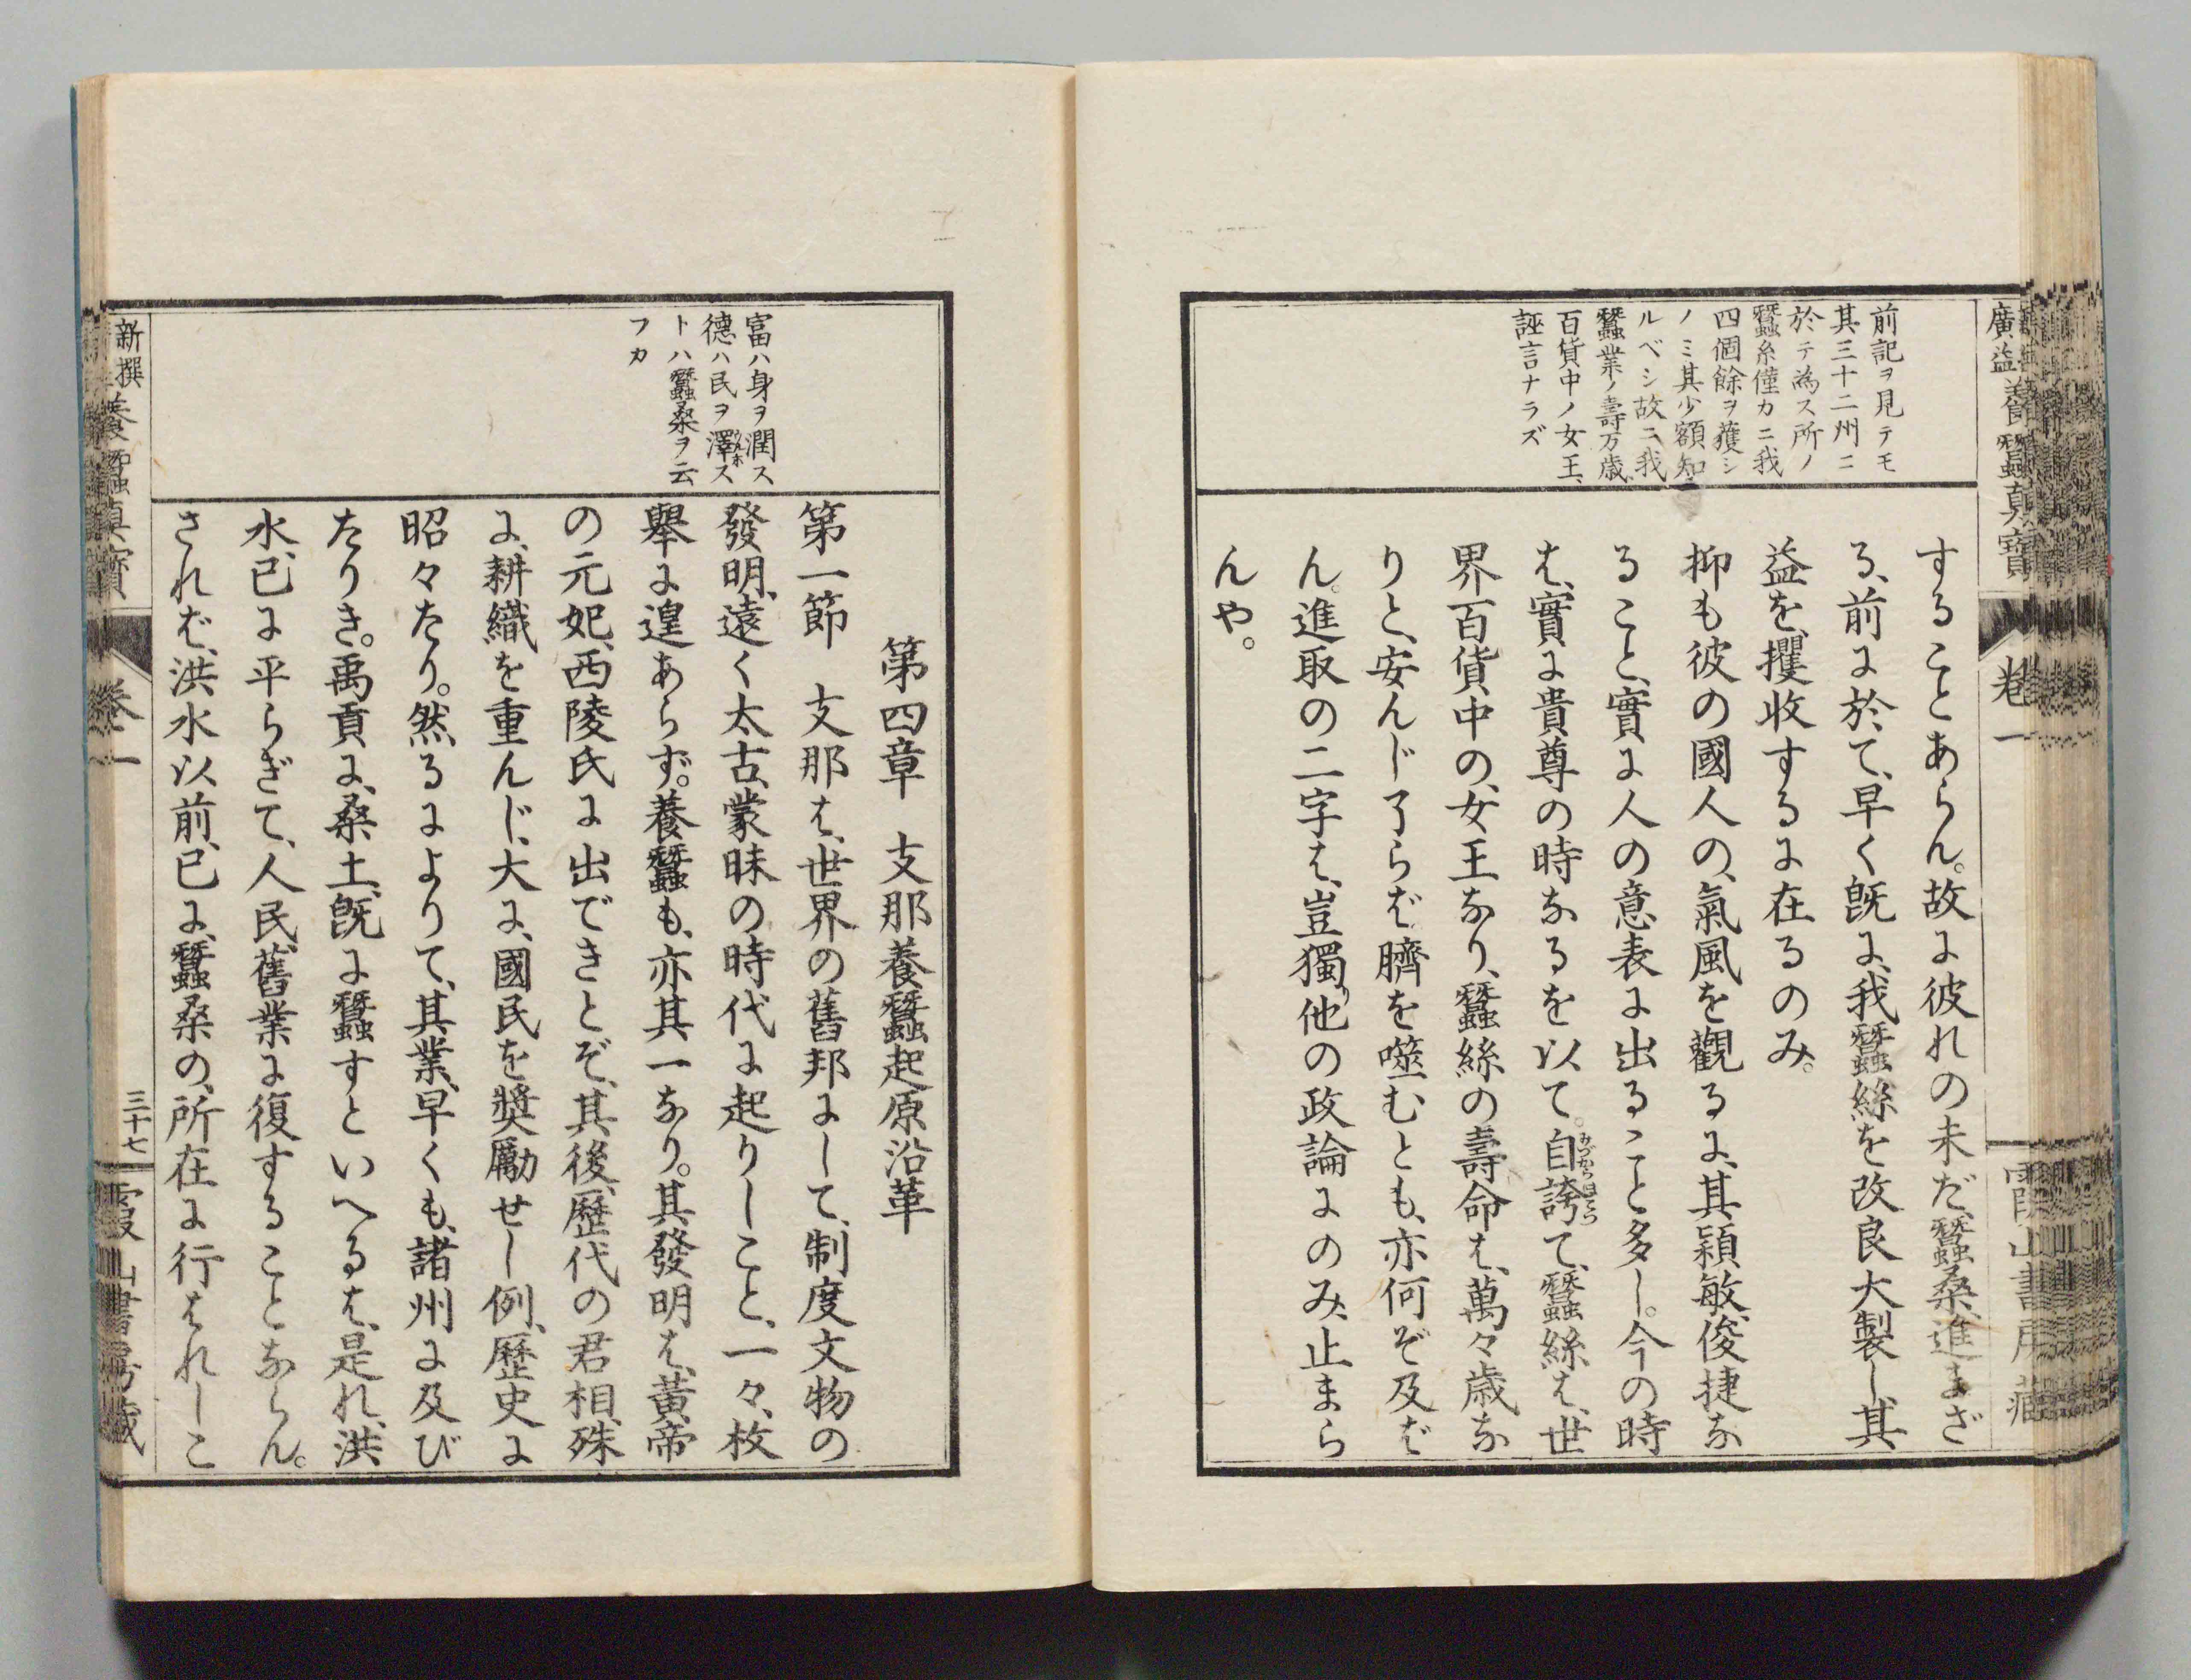 廣益養蠶眞寶
卷一
霞山書房藏
前記ヲ見テモ
其三十二州ニ
於テ為ス所ノ
蠶糸僅カニ我
四個餘ヲ獲シ
ノミ其少額知
ルベシ故ニ我
蠶業ノ壽万歳
百貨中ノ女王、
誣言ナラズ
することあらん。故に彼れの未だ、蠶桑、進まざ
る、前に於て、早く既に、我蠶絲を改良大製し、其
益を、攫收するに在るのみ。
抑も彼の國人の、氣風を觀るに、其穎敏、俊捷な
ること、實に人の意表に出ること多し。今の時
は、實に貴尊の時なるを以て。自誇て、蠶絲は、世
界百貨中の、女王なり、蠶絲の壽命は、萬々歳な
りと、安んじ了らば、臍を噬むとも、亦何ぞ及ば
ん。進取の二字は、豈獨り他の政論にのみ、止まら
んや。
富ハ身ヲ潤ス、
德ハ民ヲ澤ス、
トハ蠶桑ヲ云
フカ
第四章　支那養蠶起原沿革
第一節　支那は、世界の舊邦にして、制度文物の
發明、遠く太古、蒙昧の時代に起りしこと、一々、枚
舉に遑あらず。養蠶も、亦其一なり。其發明は、黃帝
の元妃、西陵氏に出できとぞ、其後、歷代の君相、殊
に、耕織を重んじ、大に、國民を奬勵せし例、歷史に
昭々たり。然るによりて、其業、早くも、諸州に及び
たりき。禹貢に、桑土、既に蠶すといへるは、是れ、洪
水、已に平らぎて、人民、舊業に復することならん。
されば、洪水以前、已に、蠶桑の、所在に行はれしこ
新撰養蠶眞寶
卷一
三十七
霞山書房藏